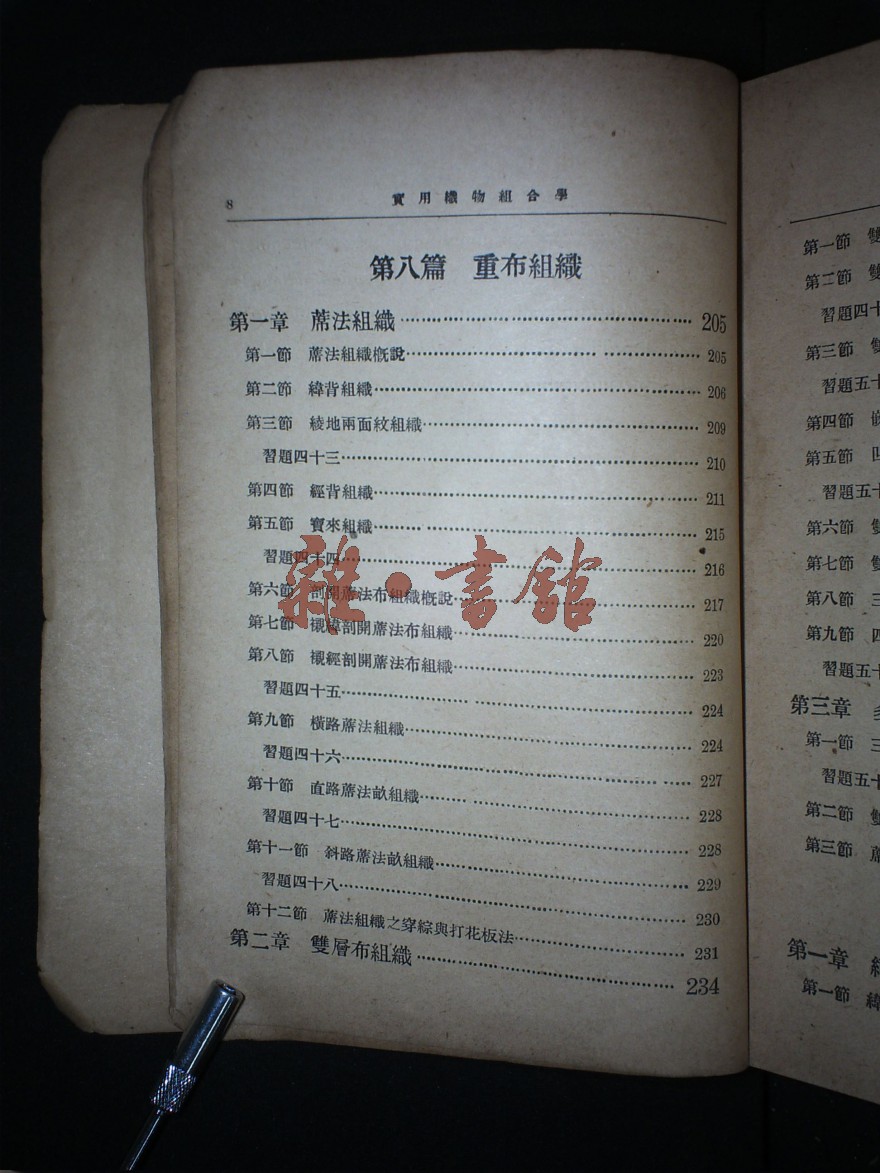 8
實用織物組合學
第八篇　重布組織
第一章　蓆法組織 205
第一節　蓆法組織概說 205
第二節　緯背組織 206
第三節　綾地兩面紋組織 209
習題四十三 210
第四節　經背組織 211
第五節　寶來組織 215
習題四十四 216
第六節　剖開蓆法布組織概說 217
第七節　襯緯剖開蓆法布組織 220
第八節　襯經剖開蓆法布組織 223
習題四十五 224
第九節　橫路蓆法組織 224
習題四十六 227
第十節　直路蓆法畝組織 228
習題四十七 228
第十一節　斜路蓆法畝組織 229
習題四十八 230
第十二節　蓆法組織之穿綜與打花板法 231
第二章　雙層布組織 234
雜·書館
第一節
第二節　雙
習題四十
第三節　雙
習題五十
第四節
第五節　四
習題五十
第六節　雙
第七節　雙
第八節　三
第九節　四
習題五十
第三章　多
第一節　三
習題五十
第二節　雙
第三節　蓆
第一章
第一節　緯